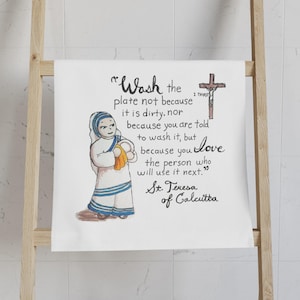 "Wash the
plate not because
it is dirty, nor
because you are told
to wash it, but
because you love
the person who
will use it next."
St. Teresa
of Calcutta
I Thirst